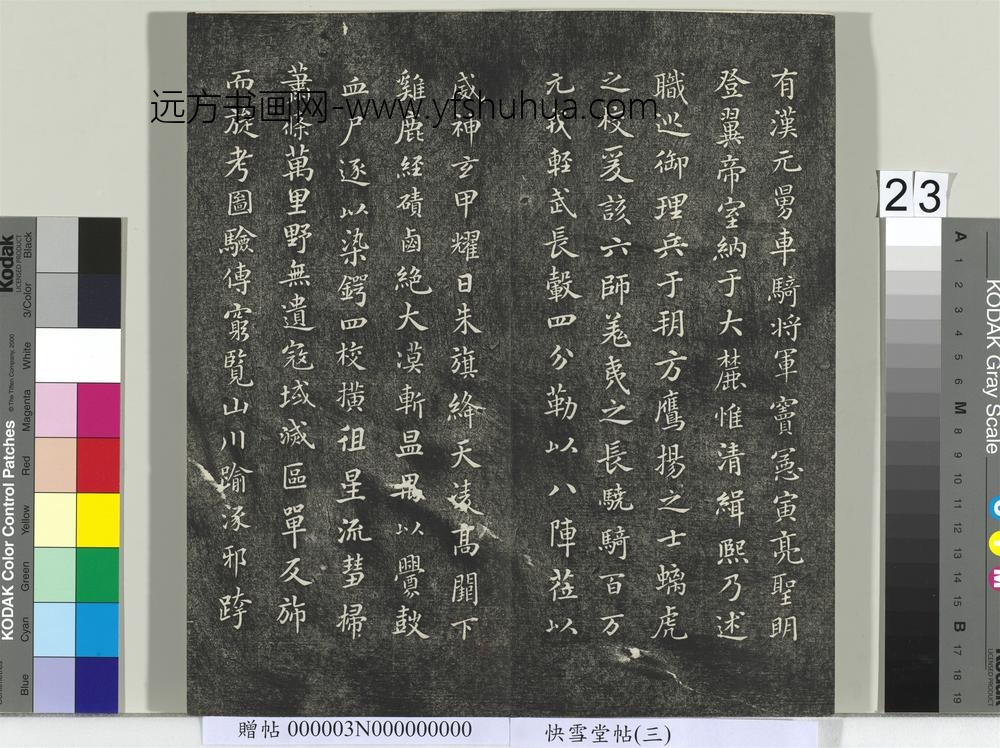 有漢元舅車騎将軍竇憲寅亮聖明
登翼帝室納于大麓惟清緝熙乃述
職巡御理兵于朔方鷹揚之士螭虎
之校爰該六師羌夷之長驍騎百万
元戎輕武長轂四分勒以八陣莅以
威神玄甲耀日朱旗絳天凌高闕下
雞鹿経磧鹵絶大漠斬温禺以釁鼓
血尸逐以染鍔四校橫徂星流彗掃
蕭條萬里野無遺寇域滅區單反斾
而旋考圖驗傳窮覧山川踰涿邪跨
远方书画网-www.yfshuhua.com
贈帖 000003N000000000
快雪堂帖(三)
23
Kodak
LICENSED PRODUCT
KODAK Color Control Patches
© The Tiffen Company, 2000
Blue Cyan Green Yellow Red Magenta White 3/Color Black
KODAK Gray Scale
A 1 2 3 4 5 6 M 8 9 10 11 12 13 14 15 B 17 18 19